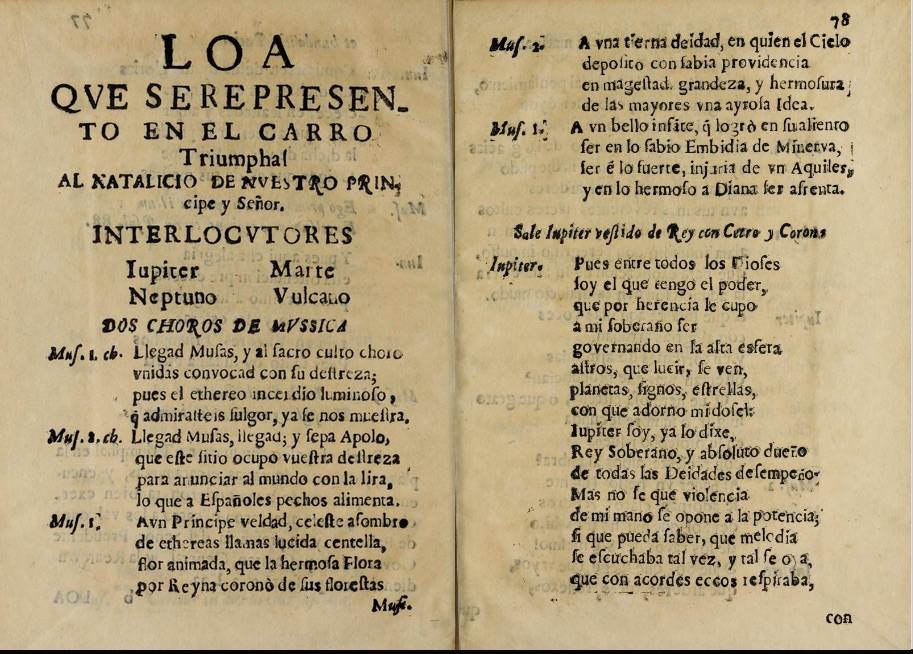 LOA
QVE SEREPRESEN-
TO EN EL CARRO
Triumphal
AL NATALICIO DE NVESTRO PRIN-
cipe y Señor.
INTERLOCVTORES
Iupiter Marte
Neptuno Vulcano
DOS CHOROS DE MVSSICA
Mus. 1. ch. Llegad Musas, y al sacro culto choro
vnidas convocad con su destreza;
pues el ethereo incendio luminoso,
q̃ admirasteis fulgor, ya se nos muestra.
Mus. 2. ch. Llegad Musas, llegad; y sepa Apolo,
que este sitio ocupò vuestra destreza
para anunciar al mundo con la lira,
lo que a Españoles pechos alimenta.
Mus. 1. Avn Principe veldad, celeste asombro
de ethereas llamas lucida centella,
flor animada, que la hermosa Flora
por Reyna coronò de sus florestas
Musi.
78
Mus. 2. A vna tierna deidad, en quien el Cielo
deposito con sabia providencia
en magestad, grandeza, y hermosura;
de las mayores vna ayrosa Idea.
Mus. 1. A vn bello infãte, q̃ logrò en su aliento
ser en lo sabio Embidia de Minerva,
ser ẽ lo fuerte, injuria de vn Aquiles,
y en lo hermoso a Diana ser afrenta.
Sale Iupiter vestido de Rey con Cetro y Corona
Iupiter. Pues entre todos los Dioses
soy el que tengo el poder,
que por herencia le cupo
a mi soberano ser
governando en la alta esfera
astros, que lucir, se ven,
planetas, signos, estrellas,
con que adorno mi dosel:
Iupiter soy, ya lo dixe,
Rey Soberano, y absoluto dueño
de todas las Deidades desempeño.
Mas no se que violencia
de mi mano se opone a la potencia;
si que pueda saber, que melodia
se escuchaba tal vez, y tal se oya,
que con acordes eccos respiraba,
con